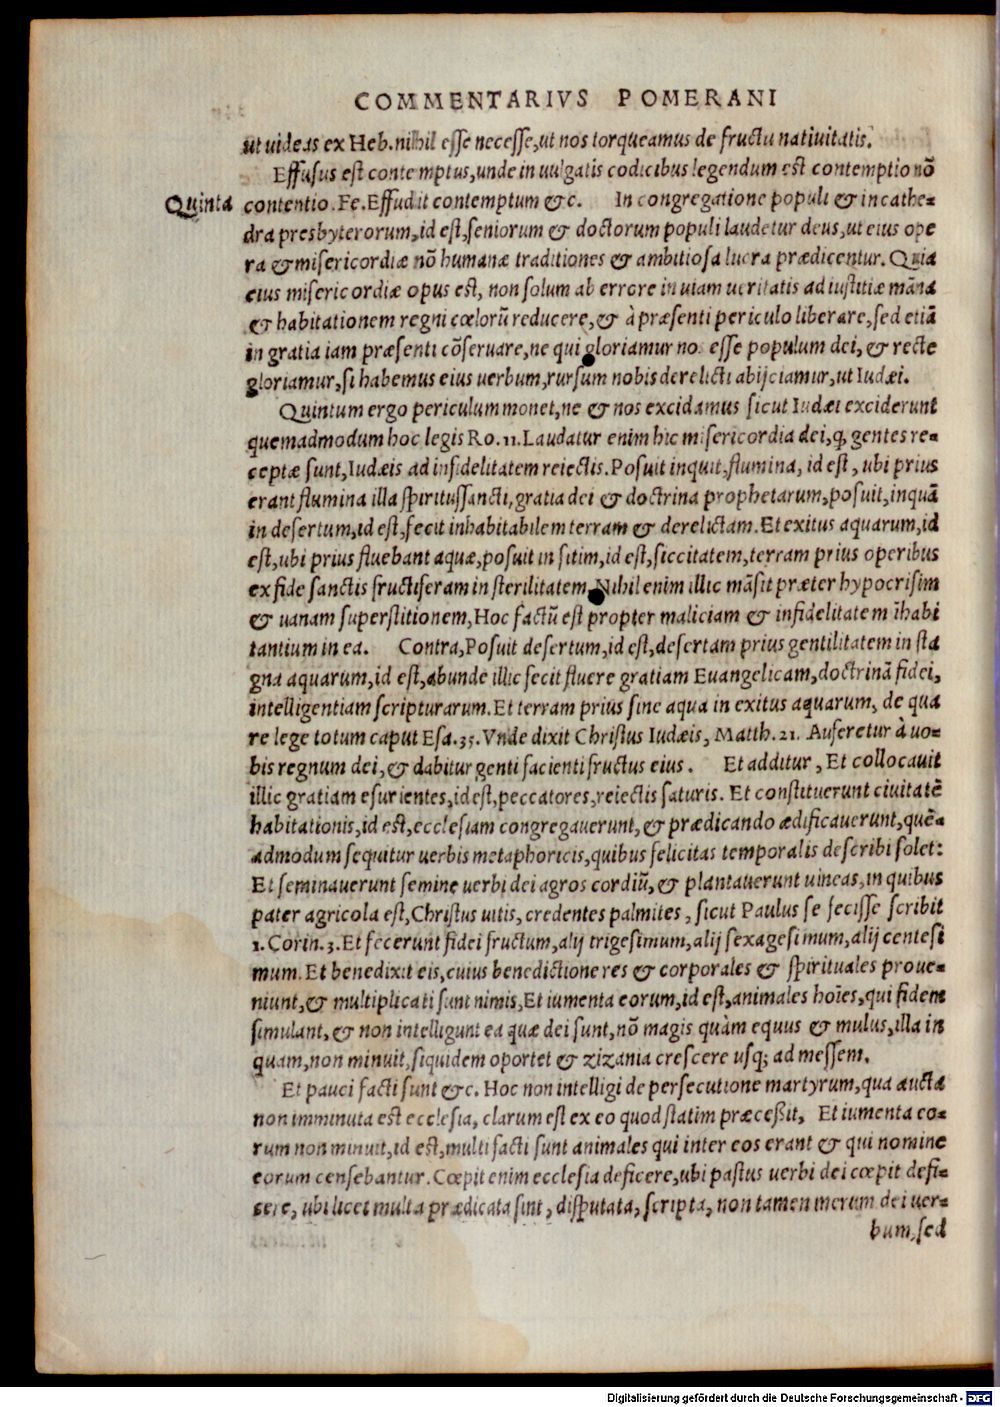 COMMENTARIVS POMERANI
ut uideas ex Heb. nihil esse necesse, ut nos torqueamus de fructu natiuitatis.
Effusus est contemptus, unde in uulgatis codicibus legendum est contemptio nō
Quinta
contentio. Fe. Effudit contemptum &c. In congregatione populi & in cathe-
dra presbyterorum, id est, seniorum & doctorum populi laudetur deus, ut eius ope
ra & misericordiæ nō humanæ traditiones & ambitiosa lucra prædicentur. Quia
eius misericordiæ opus est, non solum ab errore in uiam ueritatis ad iustitiæ māna
& habitationem regni cœlorū reducere, & à præsenti periculo liberare, sed etiā
in gratia iam præsenti cōseruare, ne qui gloriamur nos esse populum dei, & recte
gloriamur, si habemus eius uerbum, rursum nobis derelicti abijciamur, ut Iudæi.
Quintum ergo periculum monet, ne & nos excidamus sicut Iudæi exciderunt
quemadmodum hoc legis Ro. 11. Laudatur enim hic misericordia dei, q̨ gentes re-
ceptæ sunt, Iudæis ad infidelitatem reiectis. Posuit inquit, flumina, id est, ubi prius
erant flumina illa spiritussancti, gratia dei & doctrina prophetarum, posuit, inquā
in desertum, id est, fecit inhabitabilem terram & derelictam. Et exitus aquarum, id
est, ubi prius fluebant aquæ, posuit in sitim, id est, siccitatem, terram prius operibus
ex fide sanctis fructiferam in sterilitatem. Nihil enim illic māsit præter hypocrisim
& uanam superstitionem, Hoc factū est propter maliciam & infidelitatem īhabi
tantium in ea. Contra, Posuit desertum, id est, desertam prius gentilitatem in sta
gna aquarum, id est, abunde illic fecit fluere gratiam Euangelicam, doctrinā fidei,
intelligentiam scripturarum. Et terram prius sine aqua in exitus aquarum, de qua
re lege totum caput Esa. 35. Vnde dixit Christus Iudæis, Matth. 21. Auferetur à uo-
bis regnum dei, & dabitur genti facienti fructus eius. Et additur, Et collocauit
illic gratiam esurientes, id est, peccatores, reiectis saturis. Et constituerunt ciuitatē
habitationis, id est, ecclesiam congregauerunt, & prædicando ædificauerunt, quē-
admodum sequitur uerbis metaphoricis, quibus felicitas temporalis describi solet:
Et seminauerunt semine uerbi dei agros cordiū, & plantauerunt uineas, in quibus
pater agricola est, Christus uitis, credentes palmites, sicut Paulus se fecisse scribit
1. Corin. 3. Et fecerunt fidei fructum, alij trigesimum, alij sexagesimum, alij centesi
mum. Et benedixit eis, cuius benedictione res & corporales & spirituales proue-
niunt, & multiplicati sunt nimis, Et iumenta eorum, id est, animales hoīes, qui fidem
simulant, & non intelligunt ea quæ dei sunt, nō magis quàm equus & mulus, illa in
quam, non minuit, siquidem oportet & zizania crescere usq; ad messem.
Et pauci facti sunt &c. Hoc non intelligi de persecutione martyrum, qua aucta
non imminuta est ecclesia, clarum est ex eo quod statim præceßit, Et iumenta eo-
rum non minuit, id est, multi facti sunt animales qui inter eos erant & qui nomine
eorum censebantur. Cœpit enim ecclesia deficere, ubi pastus uerbi dei cœpit defi-
cere, ubi licet multa prædicata sint, disputata, scripta, non tamen merum dei uer-
bum, sed
Digitalisierung gefördert durch die Deutsche Forschungsgemeinschaft - DFG